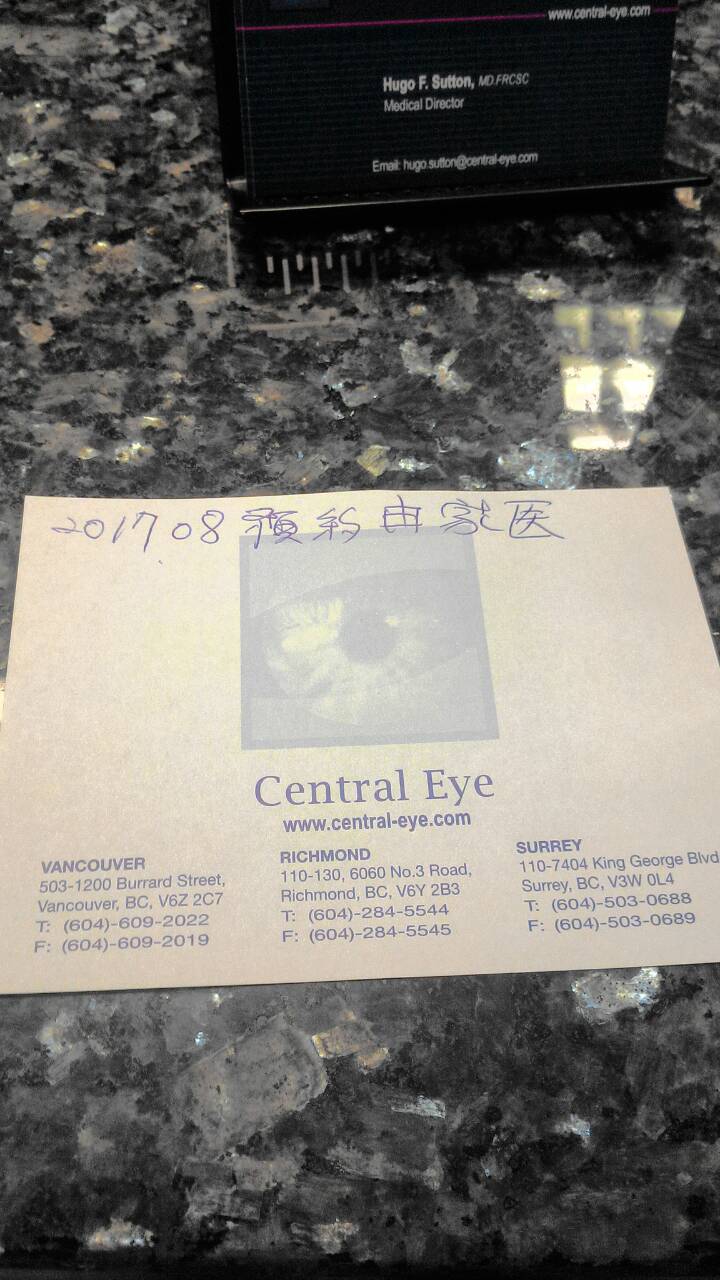 www.central-eye.com
Hugo F. Sutton, MD.FRCSC
Medical Director
Email: hugo.sutton@central-eye.com
2017.08 预约由家医
Central Eye
www.central-eye.com
VANCOUVER
503-1200 Burrard Street,
Vancouver, BC, V6Z 2C7
T: (604)-609-2022
F: (604)-609-2019
RICHMOND
110-130, 6060 No.3 Road,
Richmond, BC, V6Y 2B3
T: (604)-284-5544
F: (604)-284-5545
SURREY
110-7404 King George Blvd
Surrey, BC, V3W 0L4
T: (604)-503-0688
F: (604)-503-0689